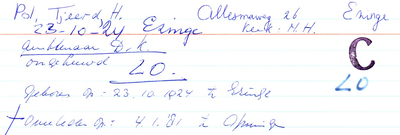 Pol, Tjeerd, H. Allersmaweg 26 Ezinge
23-10-24 Ezinge Kerk. N.H.
ambtenaar D.K.
ongehuwd LO. C
LO
Geboren op: 23.10.1924 te Ezinge
op: 4.1.'81 te